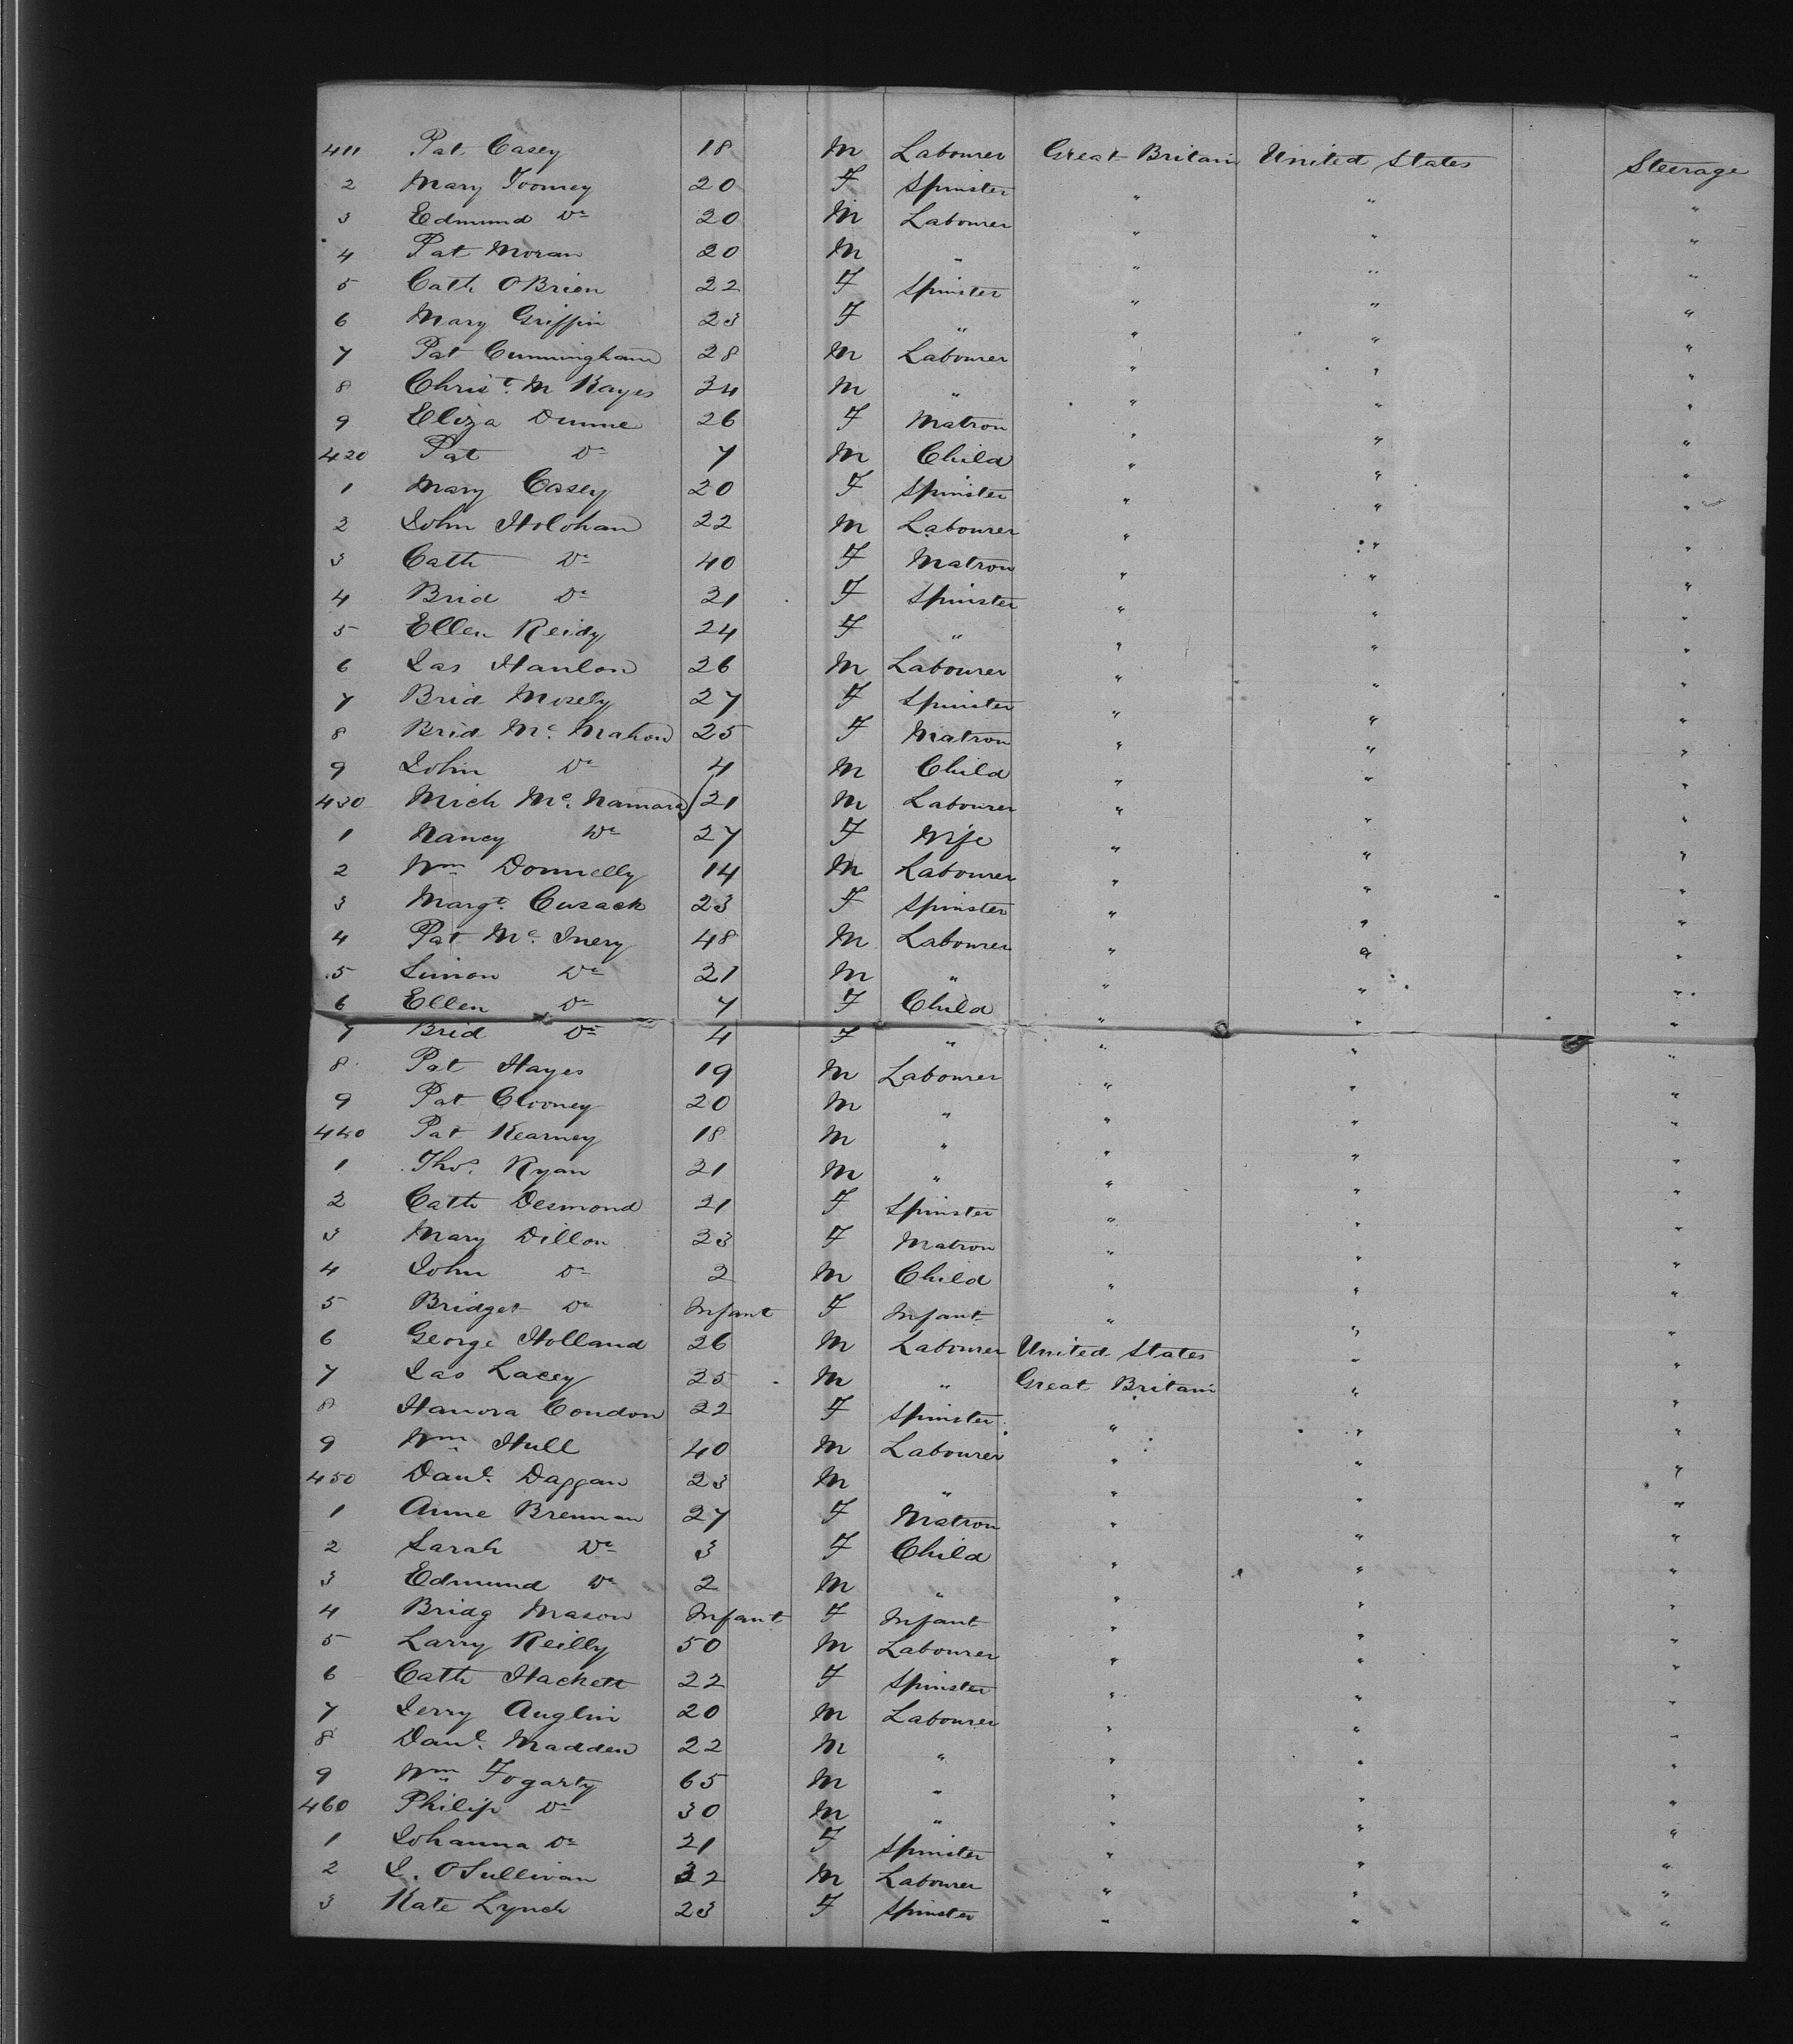 411 Pat Casey 18 M Labourer Great Britain United States Steerage
2 Mary Toomey 20 F Spinster " " "
3 Edmund Do 20 M Labourer " " "
4 Pat Moran 20 M " " " "
5 Cath O'Brien 22 F Spinster " " "
6 Mary Griffin 23 F " " " "
7 Pat Cunningham 28 M Labourer " " "
8 Christ. M Kayes 34 M " " " "
9 Eliza Dunne 26 F Matron " " "
420 Pat Do 7 M Child " " "
1 Mary Casey 20 F Spinster " " "
2 John Holohan 22 M Labourer " " "
3 Cath Do 40 F Matron " " "
4 Brid Do 21 F Spinster " " "
5 Ellen Reidy 24 F " " " "
6 Jas Hanlon 26 M Labourer " " "
7 Brid Mosely 27 F Spinster " " "
8 Brid Mc. Mahon 25 F Matron " " "
9 John Do 4 M Child " " "
430 Mich Mc. Namara 21 M Labourer " " "
1 Nancy Do 27 F Wife " " "
2 Wm Donnelly 14 M Labourer " " "
3 Margt. Cusack 23 F Spinster " " "
4 Pat Mc. Inery 48 M Labourer " " "
5 Simon Do 21 M " " " "
6 Ellen Do 7 F Child " " "
7 Brid Do 4 F " " " "
8 Pat Hayes 19 M Labourer " " "
9 Pat Clooney 20 M " " " "
440 Pat Kearney 18 M " " " "
1 Thos. Ryan 21 M " " " "
2 Cath Desmond 21 F Spinster " " "
3 Mary Dillon 23 F Matron " " "
4 John Do 2 M Child " " "
5 Bridget Do Infant F Infant " " "
6 George Holland 26 M Labourer United States " "
7 Jas Lacey 25 M " Great Britain " "
8 Hanora Condon 22 F Spinster " " "
9 Wm Hull 40 M Labourer " " "
450 Danl. Daggan 23 M " " " "
1 Anne Brennan 27 F Matron " " "
2 Sarah Do 3 F Child " " "
3 Edmund Do 2 M " " " "
4 Bridg Mason Infant F Infant " " "
5 Larry Reilly 50 M Labourer " " "
6 Cath Hackett 22 F Spinster " " "
7 Jerry Anglin 20 M Labourer " " "
8 Danl. Madden 22 M " " " "
9 Wm Fogarty 65 M " " " "
460 Philip Do 30 M " " " "
1 Johanna Do 21 F Spinster " " "
2 J. O'Sullivan 32 M Labourer " " "
3 Kate Lynch 23 F Spinster " " "